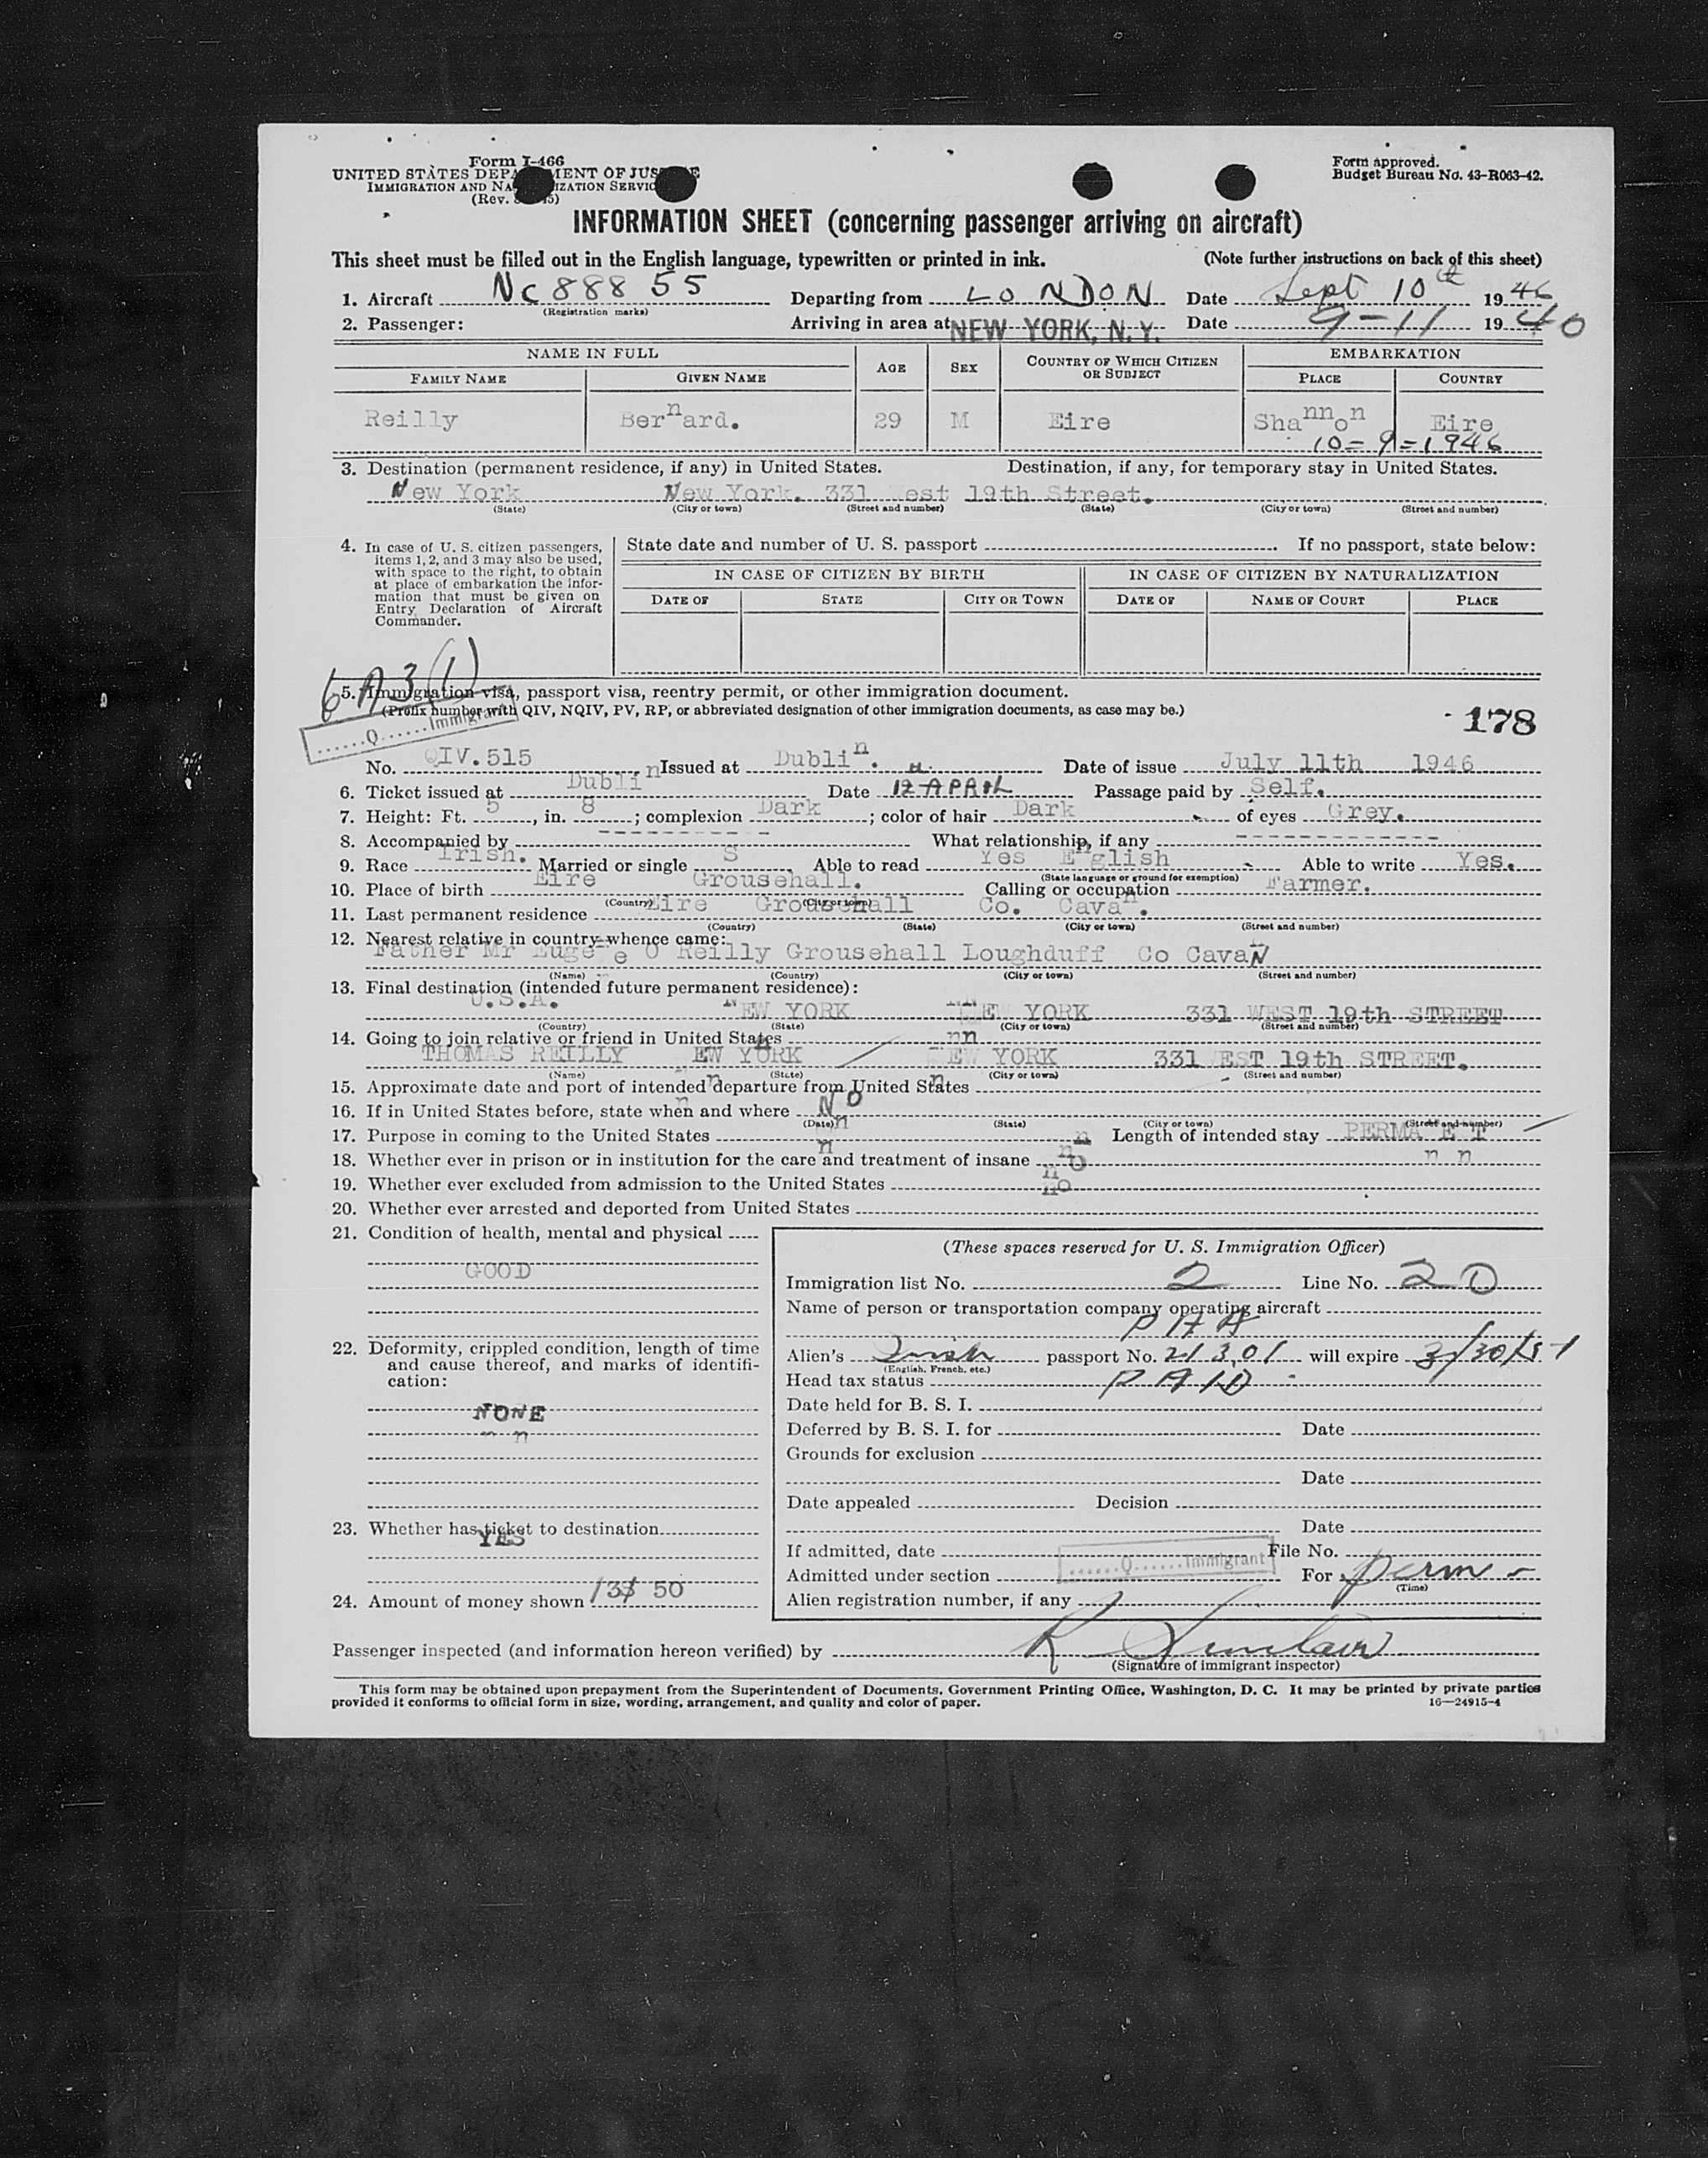 Form I-466
UNITED STATES DEPA MENT OF JUS E
IMMIGRATION AND NA IZATION SERVIC
(Rev.
Form approved.
Budget Bureau No. 43-R063-42.
INFORMATION SHEET (concerning passenger arriving on aircraft)
This sheet must be filled out in the English language, typewritten or printed in ink. (Note further instructions on back of this sheet)
1. Aircraft Nc 888 55 Departing from LONDON Date Sept 10th 1946
(Registration marks)
2. Passenger: Arriving in area at NEW YORK, N. Y. Date 9-11 19
NAME IN FULL AGE SEX COUNTRY OF WHICH CITIZEN OR SUBJECT EMBARKATION
FAMILY NAME GIVEN NAME PLACE COUNTRY
Reilly Bernard. 29 M Eire Shannon Eire
10=9=1946
3. Destination (permanent residence, if any) in United States. Destination, if any, for temporary stay in United States.
New York New York. 331 West 19th Street.
(State) (City or town) (Street and number) (State) (City or town) (Street and number)
4. In case of U. S. citizen passengers, items 1, 2, and 3 may also be used, with space to the right, to obtain at place of embarkation the information that must be given on Entry Declaration of Aircraft Commander.
State date and number of U. S. passport If no passport, state below:
IN CASE OF CITIZEN BY BIRTH IN CASE OF CITIZEN BY NATURALIZATION
DATE OF STATE CITY OR TOWN DATE OF NAME OF COURT PLACE
6 A 3 (1)
5. Immigration visa, passport visa, reentry permit, or other immigration document.
(Prefix number with QIV, NQIV, PV, RP, or abbreviated designation of other immigration documents, as case may be.)
......Q......Immigrant
178
No. QIV.515 Issued at Dublin. Date of issue July 11th 1946
6. Ticket issued at Dublin Date 12 APRIL Passage paid by Self.
7. Height: Ft. 5, in. 8; complexion Dark; color of hair Dark of eyes Grey.
8. Accompanied by ---------- What relationship, if any --------------
9. Race Irish. Married or single S Able to read Yes English Able to write Yes.
(State language or ground for exemption)
10. Place of birth Eire Grousehall. Calling or occupation Farmer.
(Country) (City or town)
11. Last permanent residence Eire Grousehall Co. Cavan.
(Country) (State) (City or town) (Street and number)
12. Nearest relative in country whence came:
Father Mr Eugene O Reilly Grousehall Loughduff Co Cavan
(Name) (Country) (City or town) (Street and number)
13. Final destination (intended future permanent residence):
U.S.A. NEW YORK NEW YORK 331 WEST 19th STREET
(Country) (State) (City or town) (Street and number)
14. Going to join relative or friend in United States
THOMAS REILLY EW YORK EW YORK 331 EST 19th STREET.
(Name) (State) (City or town) (Street and number)
15. Approximate date and port of intended departure from United States
16. If in United States before, state when and where NO
(Date) (State) (City or town) (Street and number)
17. Purpose in coming to the United States Length of intended stay PERMA E T
n n
18. Whether ever in prison or in institution for the care and treatment of insane no
19. Whether ever excluded from admission to the United States no
20. Whether ever arrested and deported from United States
21. Condition of health, mental and physical
GOOD
22. Deformity, crippled condition, length of time and cause thereof, and marks of identification:
NONE
23. Whether has ticket to destination
YES
24. Amount of money shown 50
(These spaces reserved for U. S. Immigration Officer)
Immigration list No. 2 Line No. 20
Name of person or transportation company operating aircraft
PAA
Alien's Irish passport No. 21301 will expire 3/30/51
(English, French, etc.)
Head tax status PAID
Date held for B. S. I.
Deferred by B. S. I. for Date
Grounds for exclusion
Date
Date appealed Decision
Date
If admitted, date File No.
......Q......Immigrant
Admitted under section For perm
(Time)
Alien registration number, if any
Passenger inspected (and information hereon verified) by
(Signature of immigrant inspector)
This form may be obtained upon prepayment from the Superintendent of Documents, Government Printing Office, Washington, D. C. It may be printed by private parties
provided it conforms to official form in size, wording, arrangement, and quality and color of paper. 16—24915-4